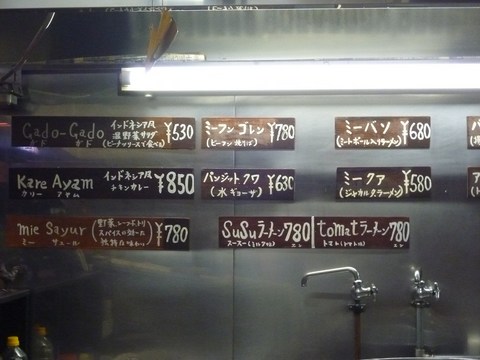 Gado-Gado インドネシア風 ¥530
ガド ガド 温野菜サラダ
(ピーナツソースで食べる)
ミーフンゴレン ¥780
(ビーフン焼そば)
ミーバソ ¥680
(ミートボール入りラーメン)
Kare Ayam インドネシア風 ¥850
カリー アヤム チキンカレー
パンシットクワ ¥630
(水ギョーザ)
ミークア ¥580
(ジャカルタラーメン)
mie Sayur ¥780
ミー サユール
SuSuラーメン 780
スースー(ミルク味)
tomatラーメン 780
トマト(トマト味)